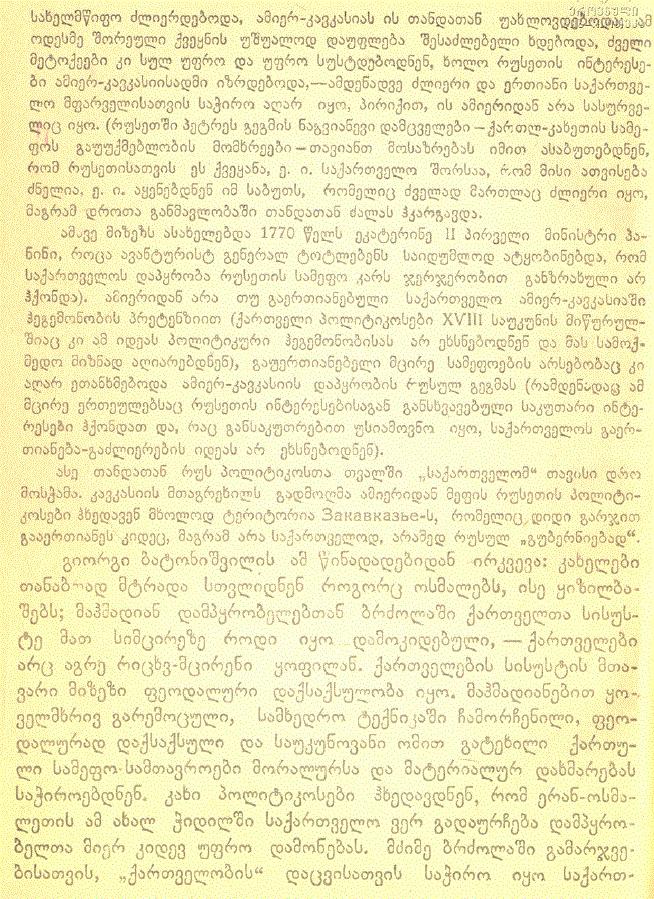 ეროვნული
სახელმწიფო ძლიერდებოდა, ამიერ-კავკასიას ის თანდათან უახლოვდებოდა, ამ
ოდესმე შორეული ქვეყნის უშუალოდ დაუფლება შესაძლებელი ხდებოდა, ძველი
მეტოქეები კი სულ უფრო და უფრო სუსტდებოდნენ, ხოლო რუსეთის ინტერესე-
ბი ამიერ-კავკასიისადმი იზრდებოდა,—ამდენადვე ძლიერი და ერთიანი საქართვე-
ლო მფარველისათვის საჭირო აღარ იყო, პირიქით, ის ამიერიდან არა სასურვე-
ლიც იყო. (რუსეთში პეტრეს გეგმის ნაგვიანევი დამცველები — ქართლ-კახეთის სამე-
ფოს გაუუქმებლობის მომხრეები — თავიანთ მოსაზრებას იმით ასაბუთებდნენ,
რომ რუსეთისათვის ეს ქვეყანა, ე. ი. საქართველო შორსაა, რომ მისი ათვისება
ძნელია. ე. ი. აყენებდნენ იმ საბუთს, რომელიც ძველად მართლაც ძლიერი იყო,
მაგრამ დროთა განმავლობაში თანდათან ძალას ჰკარგავდა.
ამავე მიზეზს ასახელებდა 1770 წელს ეკატერინე II პირველი მინისტრი პა-
ნინი, როცა ავანტურისტ გენერალ ტოტლებენს საიდუმლოდ ატყობინებდა, რომ
საქართველოს დაპყრობა რუსეთის სამეფო კარს ჯერჯერობით განზრახული არ
ჰქონდა). ამიერიდან არა თუ გაერთიანებული საქართველო ამიერ-კავკასიაში
ჰეგემონობის პრეტენზიით (ქართველი პოლიტიკოსები XVIII საუკუნის მიწურულ-
შიაც კი ამ იდეას პოლიტიკური ჰეგემონობისას არ ეხსნებოდნენ და მას სამოქ-
მედო მიზნად აღიარებდნენ), გაუერთიანებელი მცირე სამეფოების არსებობაც კი
აღარ ეთანხმებოდა ამიერ-კავკასიის დაპყრობის რუსულ გეგმას (რამდენადაც ამ
მცირე ერთეულებსაც რუსეთის ინტერესებისაგან განსხვავებული საკუთარი ინტე-
რესები ჰქონდათ და, რაც განსაკუთრებით უსიამოვნო იყო, საქართველოს გაერ-
თიანება-გაძლიერების იდეას არ ეხსნებოდნენ).
ასე თანდათან რუს პოლიტიკოსთა თვალში „საქართველომ“ თავისი დრო
მოსჭამა. კავკასიის მთაგრეხილს გადმოღმა ამიერიდან მეფის რუსეთის პოლიტი-
კოსები ჰხედავენ მხოლოდ ტერიტორია Закавказье-ს, რომელიც დიდი გარჯით
გააერთიანეს კიდეც, მაგრამ არა საქართველოდ, არამედ რუსულ „გუბერნიებად“.
გიორგი ბატონიშვილის ამ წინადადებიდან ირკვევა: კახელები
თანაბრად მტრადა სთვლიდნენ როგორც ოსმალებს, ისე ყიზილბა-
შებს; მაჰმადიან დამპყრობელებთან ბრძოლაში ქართველთა სისუს-
ტე მათ სიმცირეზე როდი იყო დამოკიდებული, — ქართველები
არც აგრე რიცხვ-მცირენი ყოფილან. ქართველების სისუსტის მთა-
ვარი მიზეზი ფეოდალური დაქსაქსულობა იყო. მაჰმადიანებით ყო-
ველმხრივ გარემოცული, სამხედრო ტექნიკაში ჩამორჩენილი, ფეო-
დალურად დაქსაქსული და საუკუნოვანი ომით გატეხილი ქართუ-
ლი სამეფო-სამთავროები მორალურსა და მატერიალურ დახმარებას
საჭიროებდნენ. კახი პოლიტიკოსები ჰხედავდნენ, რომ ერან-ოსმა-
ლეთის ამ ახალ ჭიდილში საქართველო ვერ გადაურჩება დამპყრო-
ბელთა მიერ კიდევ უფრო დამონებას. მძიმე ბრძოლაში გამარჯვე-
ბისათვის, „ქართველობის“ დაცვისათვის საჭირო იყო საქართ-